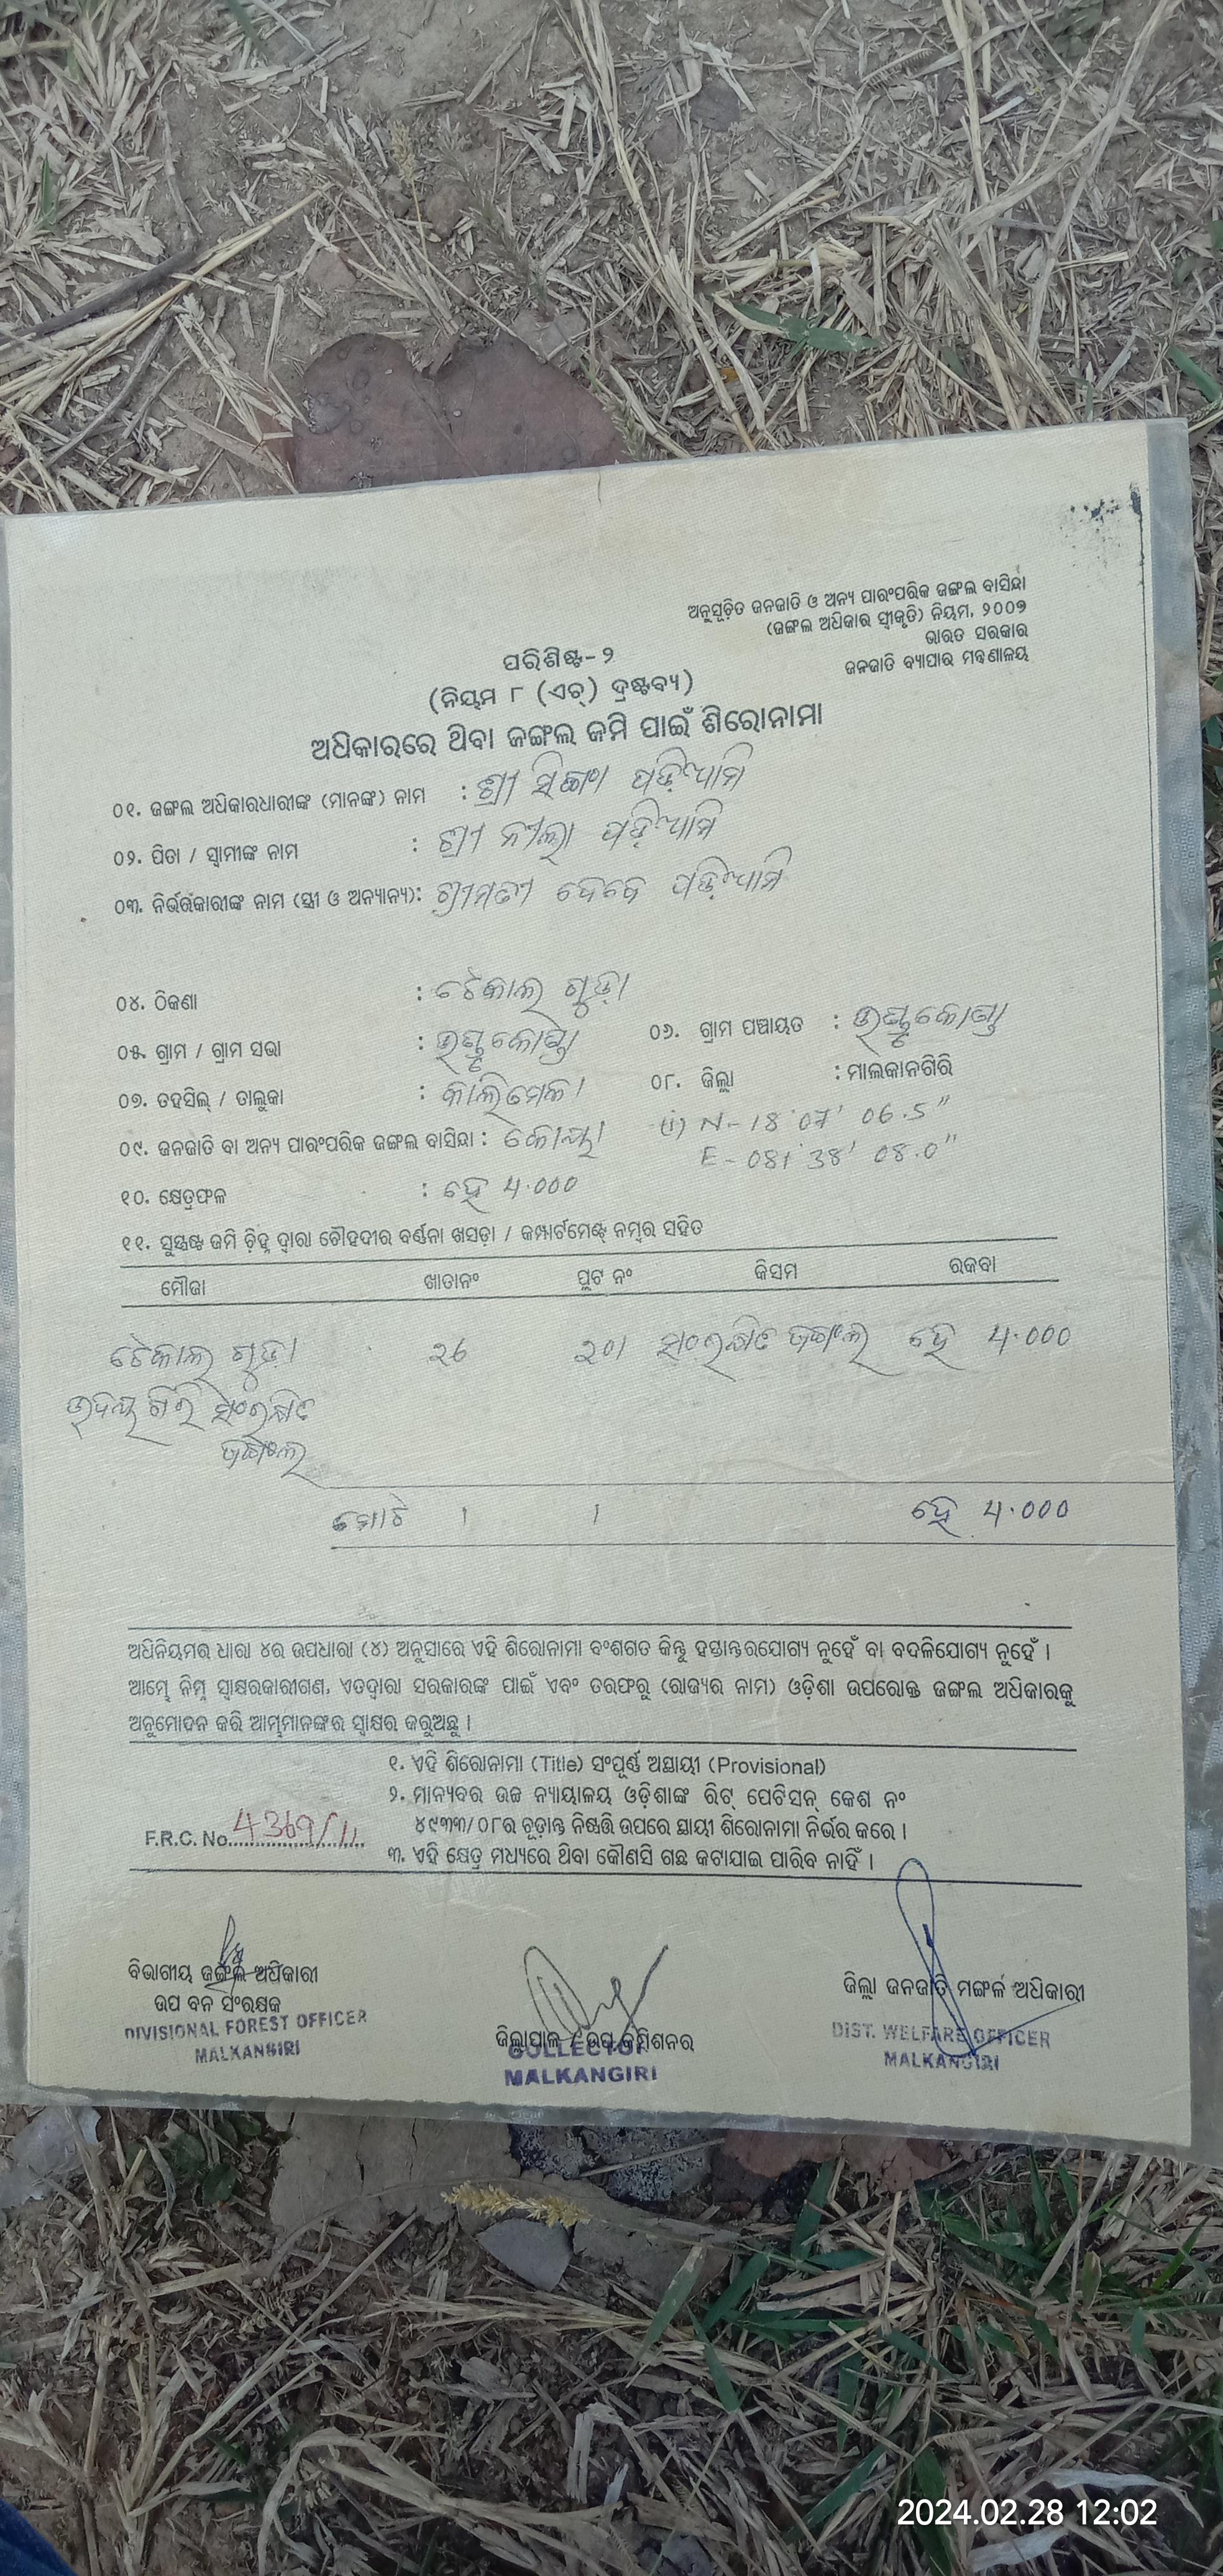 ଅନୁସୂଚିତ ଜନଜାତି ଓ ଅନ୍ୟ ପାରଂପରିକ ଜଙ୍ଗଲ ବାସିନ୍ଦା
(ଜଙ୍ଗଲ ଅଧିକାର ସ୍ୱୀକୃତି) ନିୟମ, ୨୦୦୭
ଭାରତ ସରକାର
ଜନଜାତି ବ୍ୟାପାର ମନ୍ତ୍ରଣାଳୟ
ପରିଶିଷ୍ଟ-୨
(ନିୟମ ୮ (ଏଚ୍) ଦ୍ରଷ୍ଟବ୍ୟ)
ଅଧିକାରରେ ଥିବା ଜଙ୍ଗଲ ଜମି ପାଇଁ ଶିରୋନାମା
୦୧. ଜଙ୍ଗଲ ଅଧିକାରଧାରୀଙ୍କ (ମାନଙ୍କ) ନାମ : ଶ୍ରୀ ପଡ଼ିଆମି
୦୨. ପିତା / ସ୍ୱାମୀଙ୍କ ନାମ : ଶ୍ରୀ ନୀଲା ପଡ଼ିଆମି
୦୩. ନିର୍ଭର୍ଶକାରୀଙ୍କ ନାମ (ସ୍ତ୍ରୀ ଓ ଅନ୍ୟାନ୍ୟ): ଶ୍ରୀମତୀ ଦେବେ ପଡ଼ିଆମି
୦୪. ଠିକଣା : ଟେକାଲ ଗୁଡ଼ା
୦୫. ଗ୍ରାମ / ଗ୍ରାମ ସଭା :
୦୬. ଗ୍ରାମ ପଞ୍ଚାୟତ :
୦୭. ତହସିଲ୍ / ତାଲୁକା : କାଲିମେଳା
୦୮. ଜିଲ୍ଲା : ମାଲକାନଗିରି
୦୯. ଜନଜାତି ବା ଅନ୍ୟ ପାରଂପରିକ ଜଙ୍ଗଲ ବାସିନ୍ଦା : କୋୟା
(i) N-18°07' 06.5"
E-081°38' 08.0"
୧୦. କ୍ଷେତ୍ରଫଳ : ହେ 4.000
୧୧. ସୁସ୍ପଷ୍ଟ ଜମି ଚିହ୍ନ ଦ୍ୱାରା ଚୌହଦୀର ବର୍ଣ୍ଣନା ଖସଡ଼ା / କମ୍ପାର୍ଟମେଣ୍ଟ୍ ନମ୍ବର ସହିତ
ମୌଜା ଖାତାନଂ ପ୍ଲଟ ନଂ କିସମ ରକବା
ଟେକାଲ ଗୁଡ଼ା ୨୬ ୨୦୧ ସଂରକ୍ଷିତ ଜଙ୍ଗଲ ହେ 4.000
ଉଦୟ ଗିରି ସଂରକ୍ଷିତ
ଜଙ୍ଗଲ
ମୋଟ ୧ ୧ ହେ 4.000
ଅଧିନିୟମର ଧାରା ୪ର ଉପଧାରା (୪) ଅନୁସାରେ ଏହି ଶିରୋନାମା ବଂଶଗତ କିନ୍ତୁ ହସ୍ତାନ୍ତରଯୋଗ୍ୟ ନୁହେଁ ବା ବଦଳିଯୋଗ୍ୟ ନୁହେଁ ।
ଆମ୍ଭେ ନିମ୍ନ ସ୍ୱାକ୍ଷରକାରୀଗଣ, ଏତଦ୍ୱାରା ସରକାରଙ୍କ ପାଇଁ ଏବଂ ତରଫରୁ (ରାଜ୍ୟର ନାମ) ଓଡ଼ିଶା ଉପରୋକ୍ତ ଜଙ୍ଗଲ ଅଧିକାରକୁ
ଅନୁମୋଦନ କରି ଆମ୍ଭମାନଙ୍କର ସ୍ୱାକ୍ଷର କରୁଅଛୁ ।
୧. ଏହି ଶିରୋନାମା (Title) ସଂପୂର୍ଣ୍ଣ ଅସ୍ଥାୟୀ (Provisional)
୨. ମାନ୍ୟବର ଉଚ୍ଚ ନ୍ୟାୟାଳୟ ଓଡ଼ିଶାଙ୍କ ରିଟ୍ ପେଟିସନ୍ କେଶ ନଂ
୪୯୩୩/୦୮ର ଚୂଡ଼ାନ୍ତ ନିଷ୍ପତ୍ତି ଉପରେ ସ୍ଥାୟୀ ଶିରୋନାମା ନିର୍ଭର କରେ ।
F.R.C. No. 4369/11
୩. ଏହି କ୍ଷେତ୍ର ମଧ୍ୟରେ ଥିବା କୌଣସି ଗଛ କଟାଯାଇ ପାରିବ ନାହିଁ ।
ବିଭାଗୀୟ ଜଙ୍ଗଲ ଅଧିକାରୀ
ଉପ ବନ ସଂରକ୍ଷକ
DIVISIONAL FOREST OFFICER
MALKANGIRI
ଜିଲ୍ଲାପାଳ / ଉପ କମିଶନର
COLLECTOR
MALKANGIRI
ଜିଲ୍ଲା ଜନଜାତି ମଙ୍ଗଳ ଅଧିକାରୀ
DIST. WELFARE OFFICER
MALKANGIRI
2024.02.28 12:02